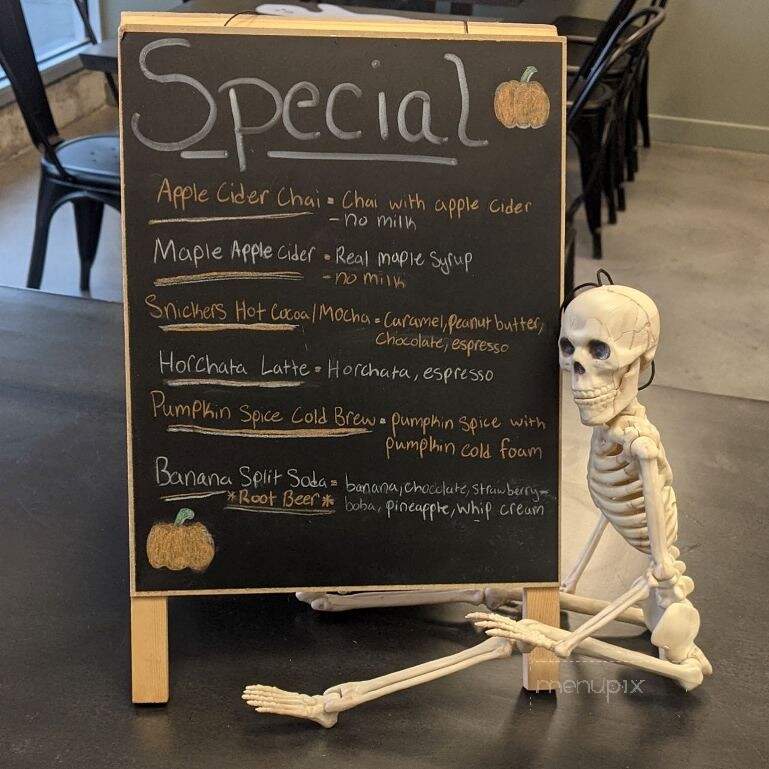 Special
Apple Cider Chai = Chai with apple cider
- no milk
Maple Apple cider = Real maple syrup
- no milk
Snickers Hot Cocoa/Mocha = Caramel, Peanut butter,
Chocolate, espresso
Horchata Latte = Horchata, espresso
Pumpkin Spice Cold Brew = pumpkin spice with
pumpkin cold foam
Banana Split Soda = banana, chocolate, strawberry-
*Root Beer* boba, pineapple, whip cream
menupix